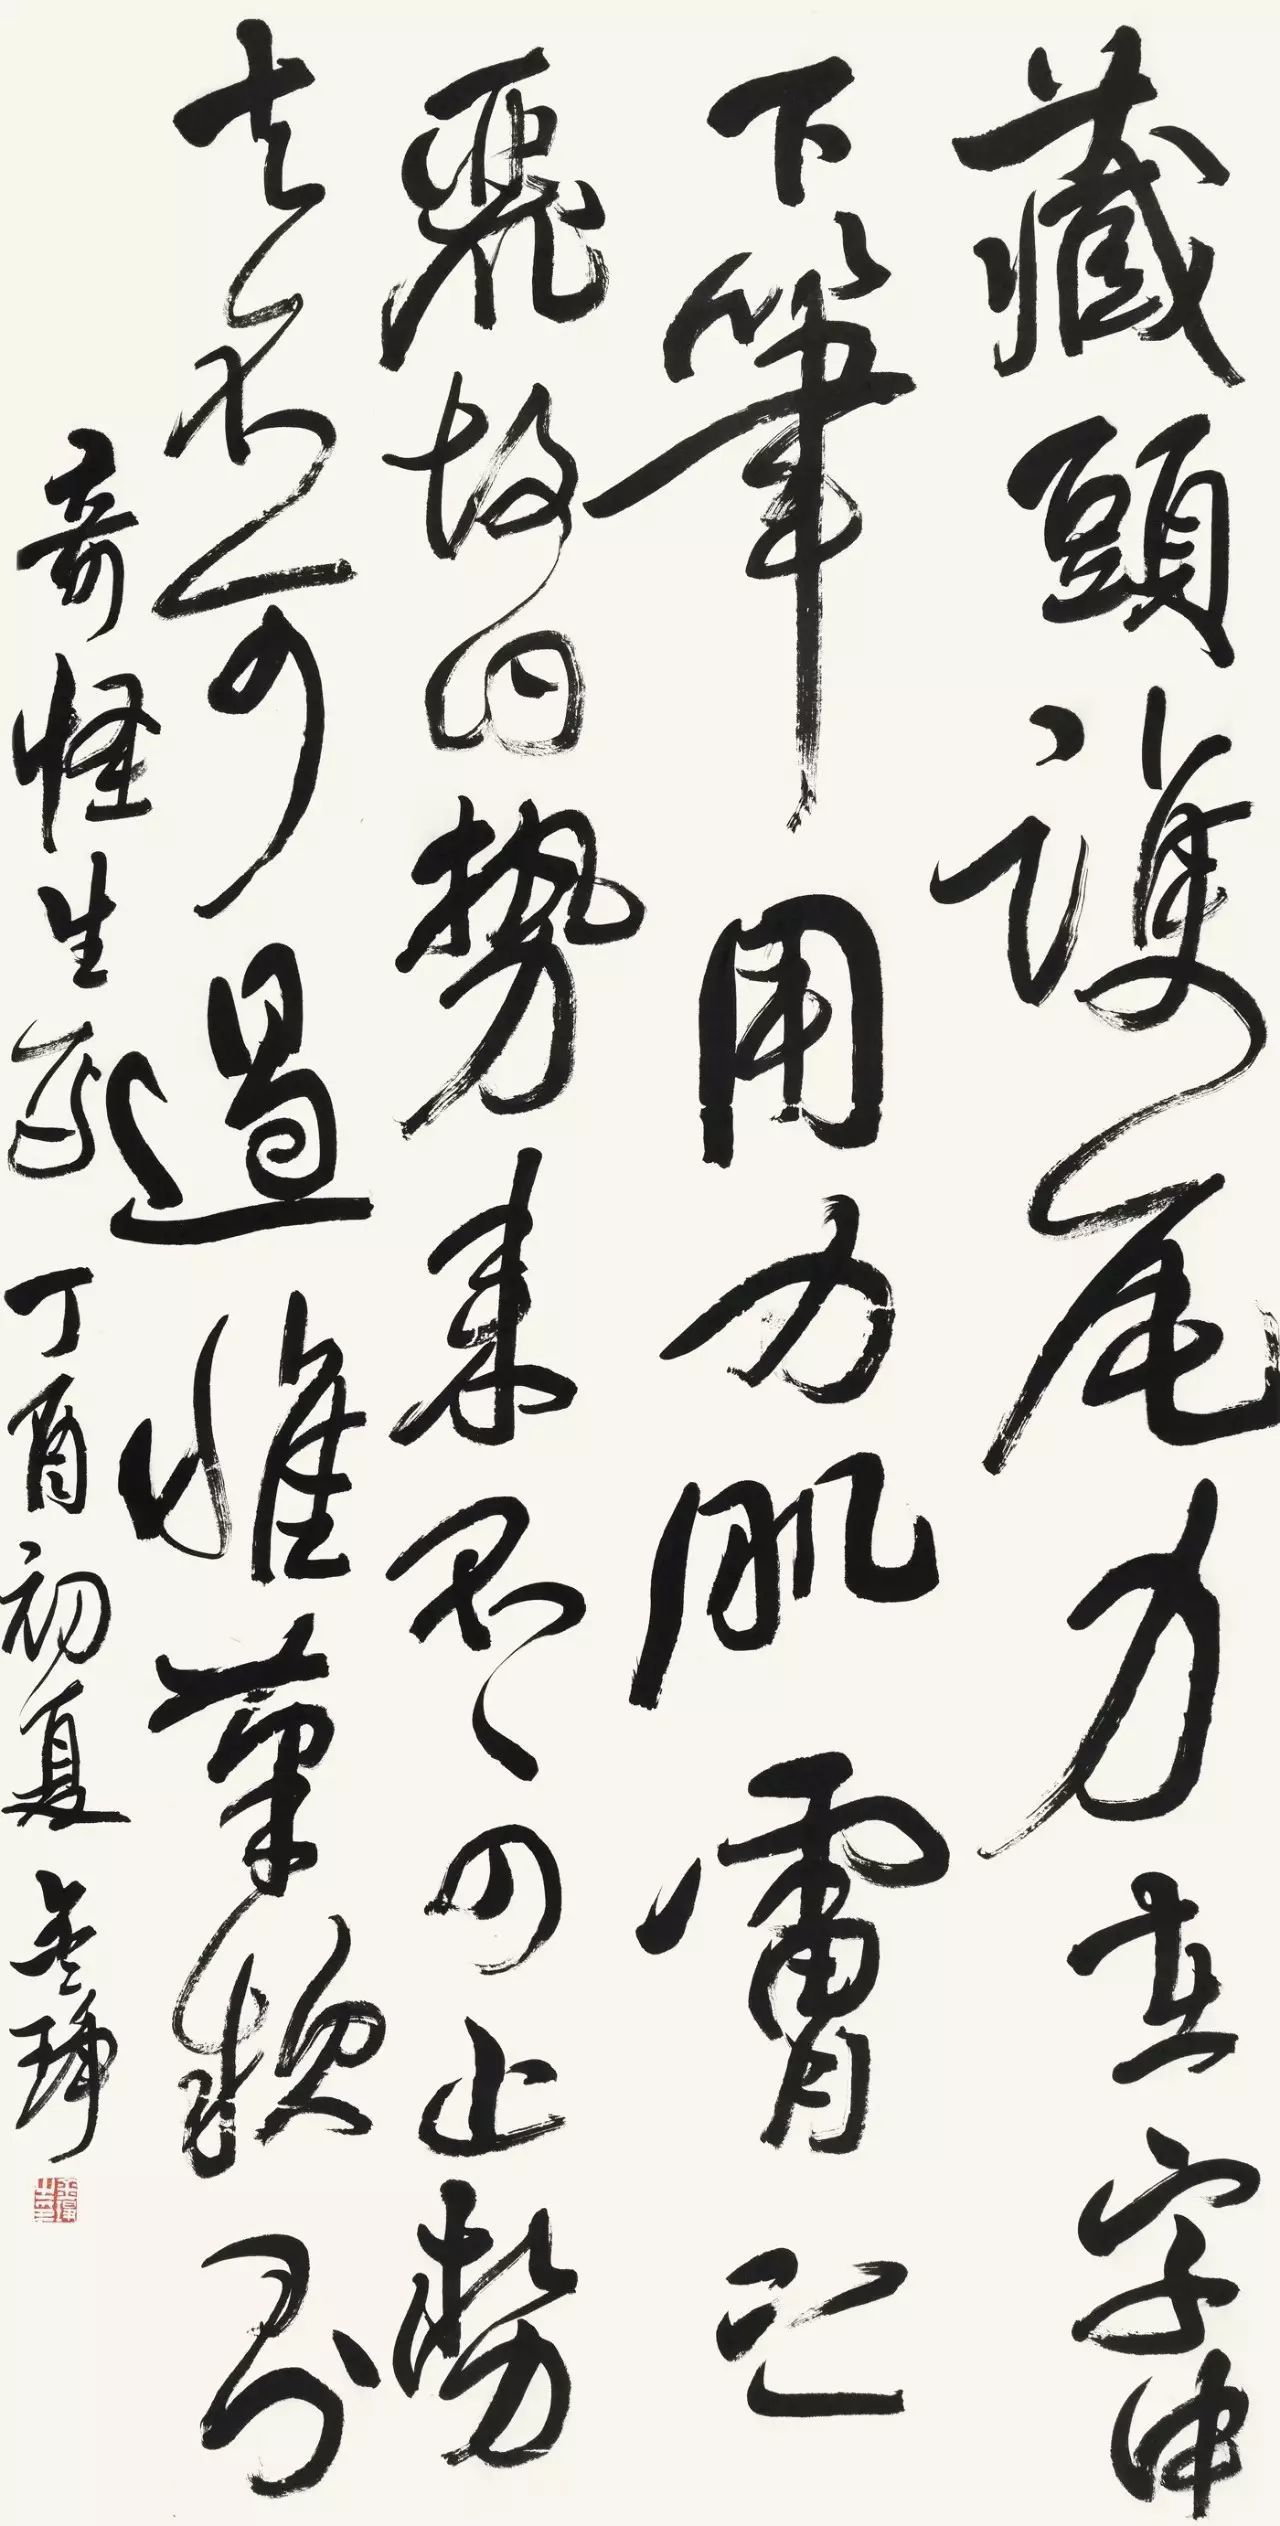 藏頭護尾力在字中
下筆用力肌膚之
麗故曰勢来可止勢
去不可遏惟筆軟則
奇怪生焉 丁酉初夏